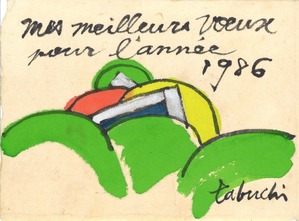 mes meilleurs vœux
pour l'année
1986
tabuchi